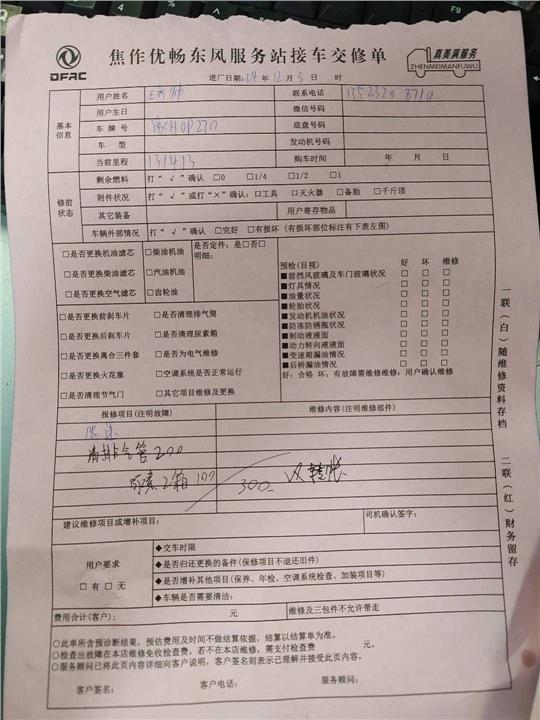 F9
DFAC
焦作优畅东风服务站接车交修单
真美满服务
ZHENMEIMANFUWU
进厂日期:24年12月3日 时
基本信息
用户姓名 联系电话 1352320 8710
用户生日 微信号码
车牌号 底盘号码
车型 发动机号码
当前里程 131413 购车时间 年 月 日
修前状态
剩余燃料 打“√”确认 □0 □1/4 □1/2 □1
附件状况 打“√”或打“×”确认：□工具 □灭火器 □备胎 □千斤顶
其它装备 用户寄存物品
车辆外部情况 打“√”确认 □完好 □有损坏（有损坏部位标注有下表左图）
□是否更换机油滤芯 □柴油机油 是否定件：是□否□
□是否更换柴油滤芯 □汽油机油 明细：
□是否更换空气滤芯 □齿轮油
□是否更换前刹车片 □是否清理排气筒
□是否更换后刹车片 □是否清理尿素箱
□是否更换离合三件套 □是否为电气维修
□是否更换火花塞 □空调系统是否正常运行
□是否清理节气门 □其它项目维修及更换
预检(目视) 好 坏 维修
■前挡风玻璃及车门玻璃状况 □ □ □
■灯具情况 □ □ □
■油量状况 □ □ □
■轮胎状况 □ □ □
■发动机机油状况 □ □ □
■防冻防锈瓶状况 □ □ □
■制动液液面 □ □ □
■动力转向液液面 □ □ □
■变速箱漏油情况 □ □ □
■后桥漏油情况 □ □ □
好：合格 坏：有故障需维修维修：用户确认维修
报修项目(注明故障) 维修内容(注明维修部件)
限速
清排气管 200
尿素箱 100 300
建议维修项目或增补项目： 司机确认签字：
用户要求
□有□无
◆交车时限
◆是否归还更换的备件(保修项目不退还旧件)
◆是否增补其他项目(保养、年检、空调系统检查、加装项目等)
◆车辆是否需要清洁：
费用合计(客户)： 元 维修及三包件不允许带走
○此单所含预诊断结果，预估费用及时间不做结算依据，结算以结算单为准。
○检查出故障在本店维修免收检查费，若不在本店维修，需支付检查费 元。
○服务顾问已将此页内容详细向客户说明，客户签名则表示已理解并接受此页内容。
客户签名： 客户电话： 服务顾问：
一联（白）随维修资料存档 二联（红）财务留存